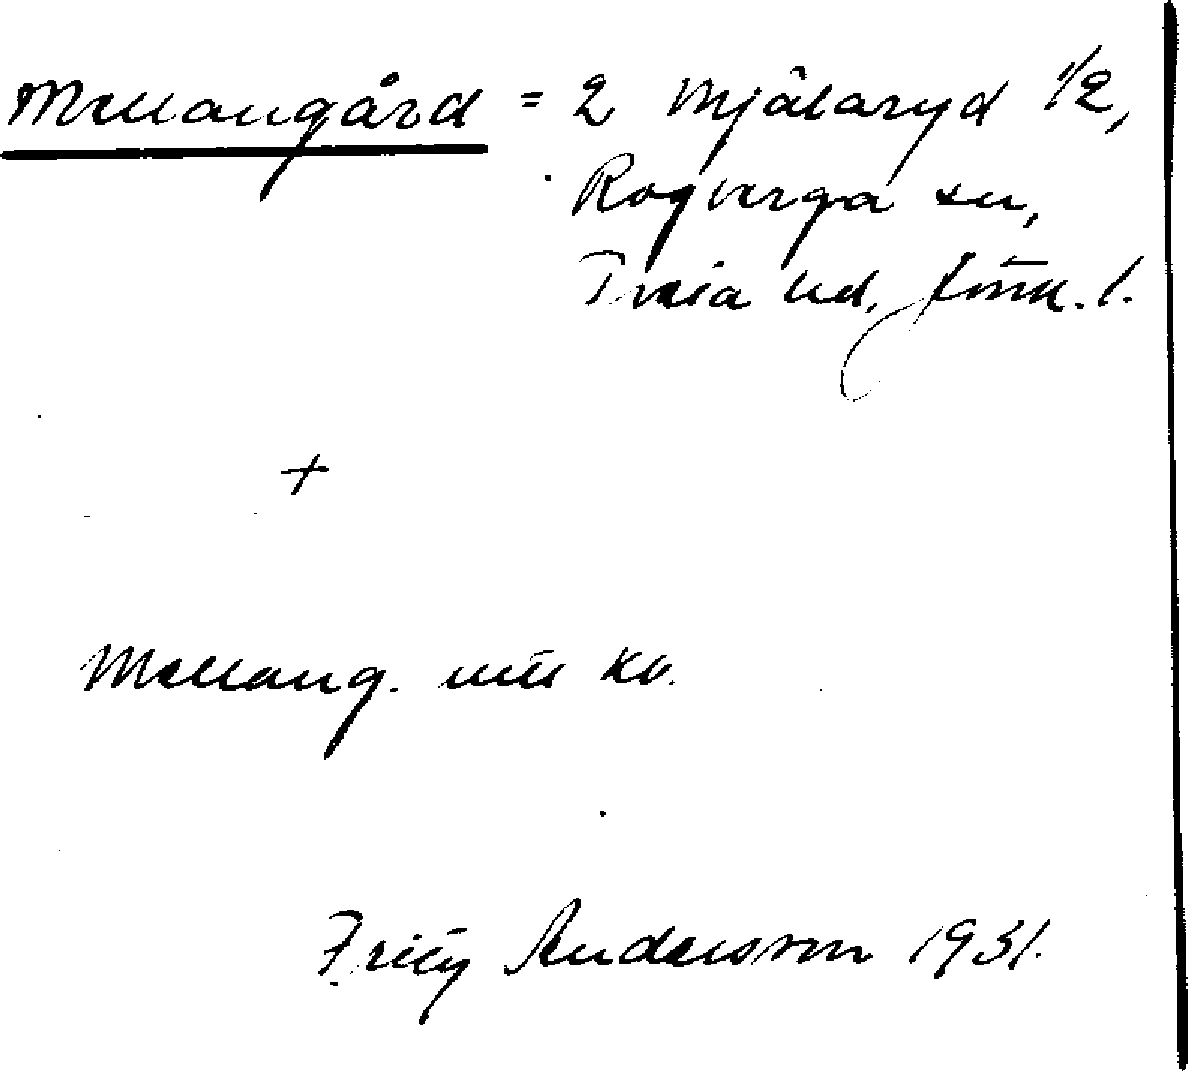 Mellangård = 2 Mjälaryd 1/2,
Rogberga sn,
Tveta hd, Jönk. l.
+
Mellang. utt. ko.
Fritz Andersson 1931.